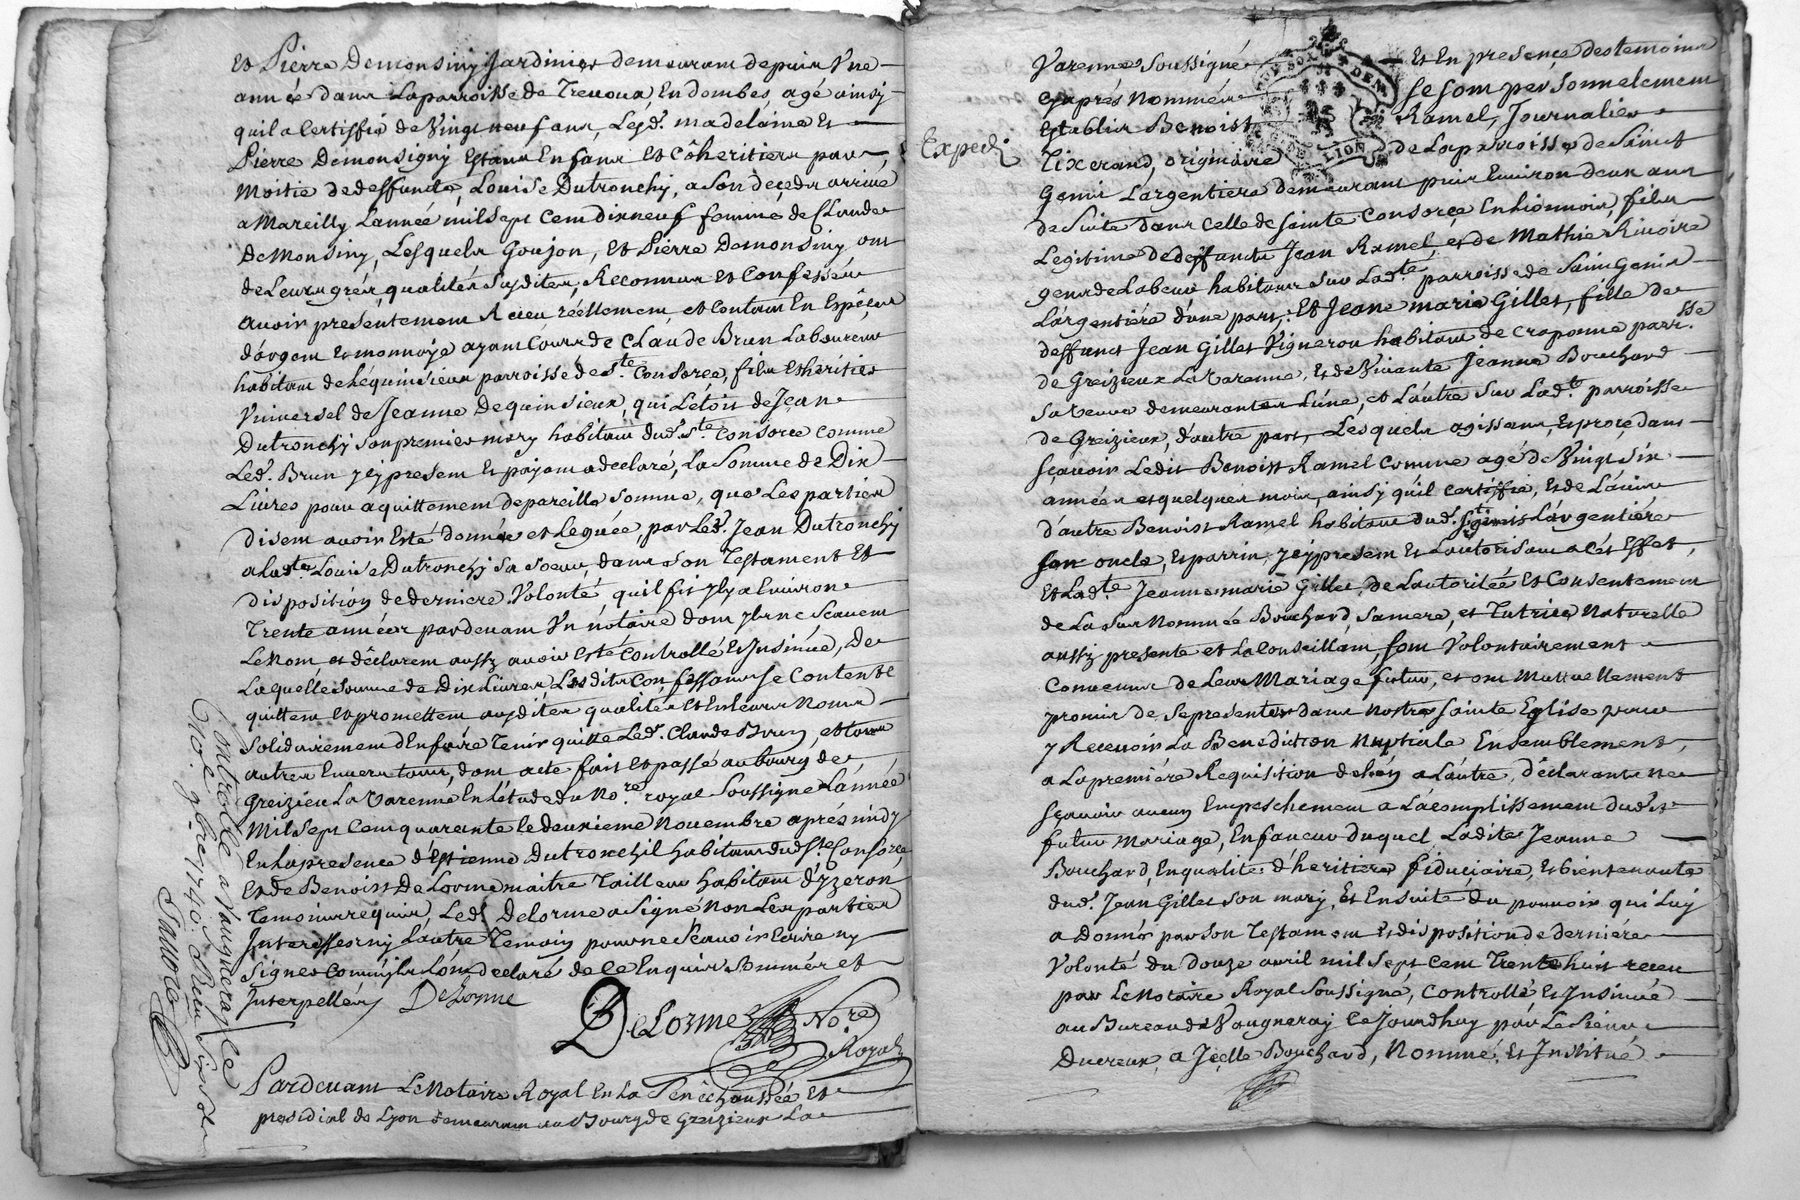 Et Pierre Demonsiny Jardinier demeurant depuis Une
année dans Laparroisse de Trevoux Endombes, agé ainsy
quil a Certiffié de Vingt neuf ans, Lesd. madelaine Et
Pierre Demonsigny Estant Enfans Et Cohéritiers pour
Moitié dedeffunte Louise Dutronchy, a son décèds arrivé
a Marcilly Lannée mil sept Cent dixneuf femme de Claude
DeMonsiny, Lesquels Goujon, Et Pierre Demonsiny ont
de Leurs grés, qualités Susdites, Reconnus Et Confessé
avoir presentement Receu réellement et Contant En Espèces
d'argent et monnoye ayant Cours de Claude Brun Laboureur
habitant de Lequinsieux parroisse de Ste. Consorce, fils Et héritier
Universel de Jeanne Dequinsieux, qui Letoit de Jean
Dutronchy son premier mary habitant dud. Ste. Consorce comme
Led. Brun yey present Et payant a declaré, La Somme de Dix
Livres pour aquittement de pareille somme, que Les parties
disent avoir Esté donnée et Leguée, par Led. Jean Dutronchy
a Ladte. Louise Dutronchy Sa Soeur, dans son Testament Et
disposition de derniere Volonté, quil fit yly a Environ
Trente années pardevant Un notaire dont yls ne Scavent
Le Nom, et déclarent aussy avoir Esté Controllé Et Insinué, De
Laquelle Somme de Dix Livres Lesdits Confessants se Contente
quittent et promettent ausdites qualités et En Leurs Noms
Solidairement d'En faire Tenir quitte Led. Claude Brun, et tous
autres Envers tous, dont acte fait et passé au bourg de
Greizieu La Varenne En Létude du Nore. royal Soussigné Lannée
Mil Sept Cent quarante le deuxieme Novembre après midy
En La presence d'Estienne Dutronchil habitant dud. Ste Consorce,
Et de Benoist De Lorme maitre Tailleur habitant d'yzeron
Temoins requis, Led. Delorme a Signé Non Les parties
Interessées ny Lautre Temoin pour ne Scavoir Ecrire ny
Signer Comme ils Lont declaré de Ce Enquis Sommés et
Interpellés DeLorme
DeLorme Nore
Royal
Controllé a Vaugneray Ce
9bre 1740.
Pardevant Le Notaire Royal En La Sénéchaussée Et
presidial de Lyon demeurant au Bourg de Greizieux La
Varenne Soussigné Et En presence des temoins
cyaprés Nommés Se Sont personnelement
Establis Benoist Ramel, Journalier
Expedi
Tixerand, originaire de La parroisse de Sainct
Genis Largentiere demeurant puis Environ deux ans
de Suite dans Celle de Sainte Consorce En Lionnois, fils
Légitime dedeffunct Jean Ramel, et de Mathie Rivoire
gens de Labeur habitans Sur Ladte. parroisse de Saint Genis
Largentiére d'une part; Et Jeane marie Gillet, fille de
deffunct Jean Gillet Vigneron habitant de Craponne parrsse.
de Greizieux La Varenne, Et de Vivante Jeanne Bouchard
Sa Veuve demeurantes Lune, et Lautre Sur Ladte. parroisse
de Greizieux, d'autre part, Lesquels agissans, Et procédans
Sçavoir Ledit Benoist Ramel Comme agé de Vingt Six
années et quelques mois, ainsy quil Certiffie, Et de Lavis
d'autre Benoist Ramel habitant dud. St. genis Largentiére
Son oncle, Et parrin yey present Et Lautorisant a cet Effet,
Et Ladte. Jeanne marie Gillet, de Lautorité Et Consentement
de La Sus Nommée Bouchard, Samere, et Tutrice Naturelle
aussy presente et La Conseillant, Sont Volontairement
Convenus de Leur Mariage futur, et ont Mutuellement
promis de Se presenter dans Nostre Sainte Eglise pour
y Recevoir La Benediction Nuptiale Ensemblement,
a La première Requisition de L'un a Lautre, déclarants ne
Sçavoir aucun Empeschement a Lacomplissement dudit
futur Mariage, En faveur duquel Ladite Jeanne
Bouchard, En qualité d'heritière fiduciaire, Et bientenante
dud. Jean Gillet Son mary, Et En suite du pouvoir qui Luy
a Donné par Son Testament Et disposition de dernière
Volonté du douze avril mil Sept Cent Trente huit receu
par Le Notaire Royal Soussigné, Controllé Et Insinué
au Bureau de Vaugneray Ce Jourdhuy par Le Sieur
Ducreux, a Icelle Bouchard, Nommé, Et Institué